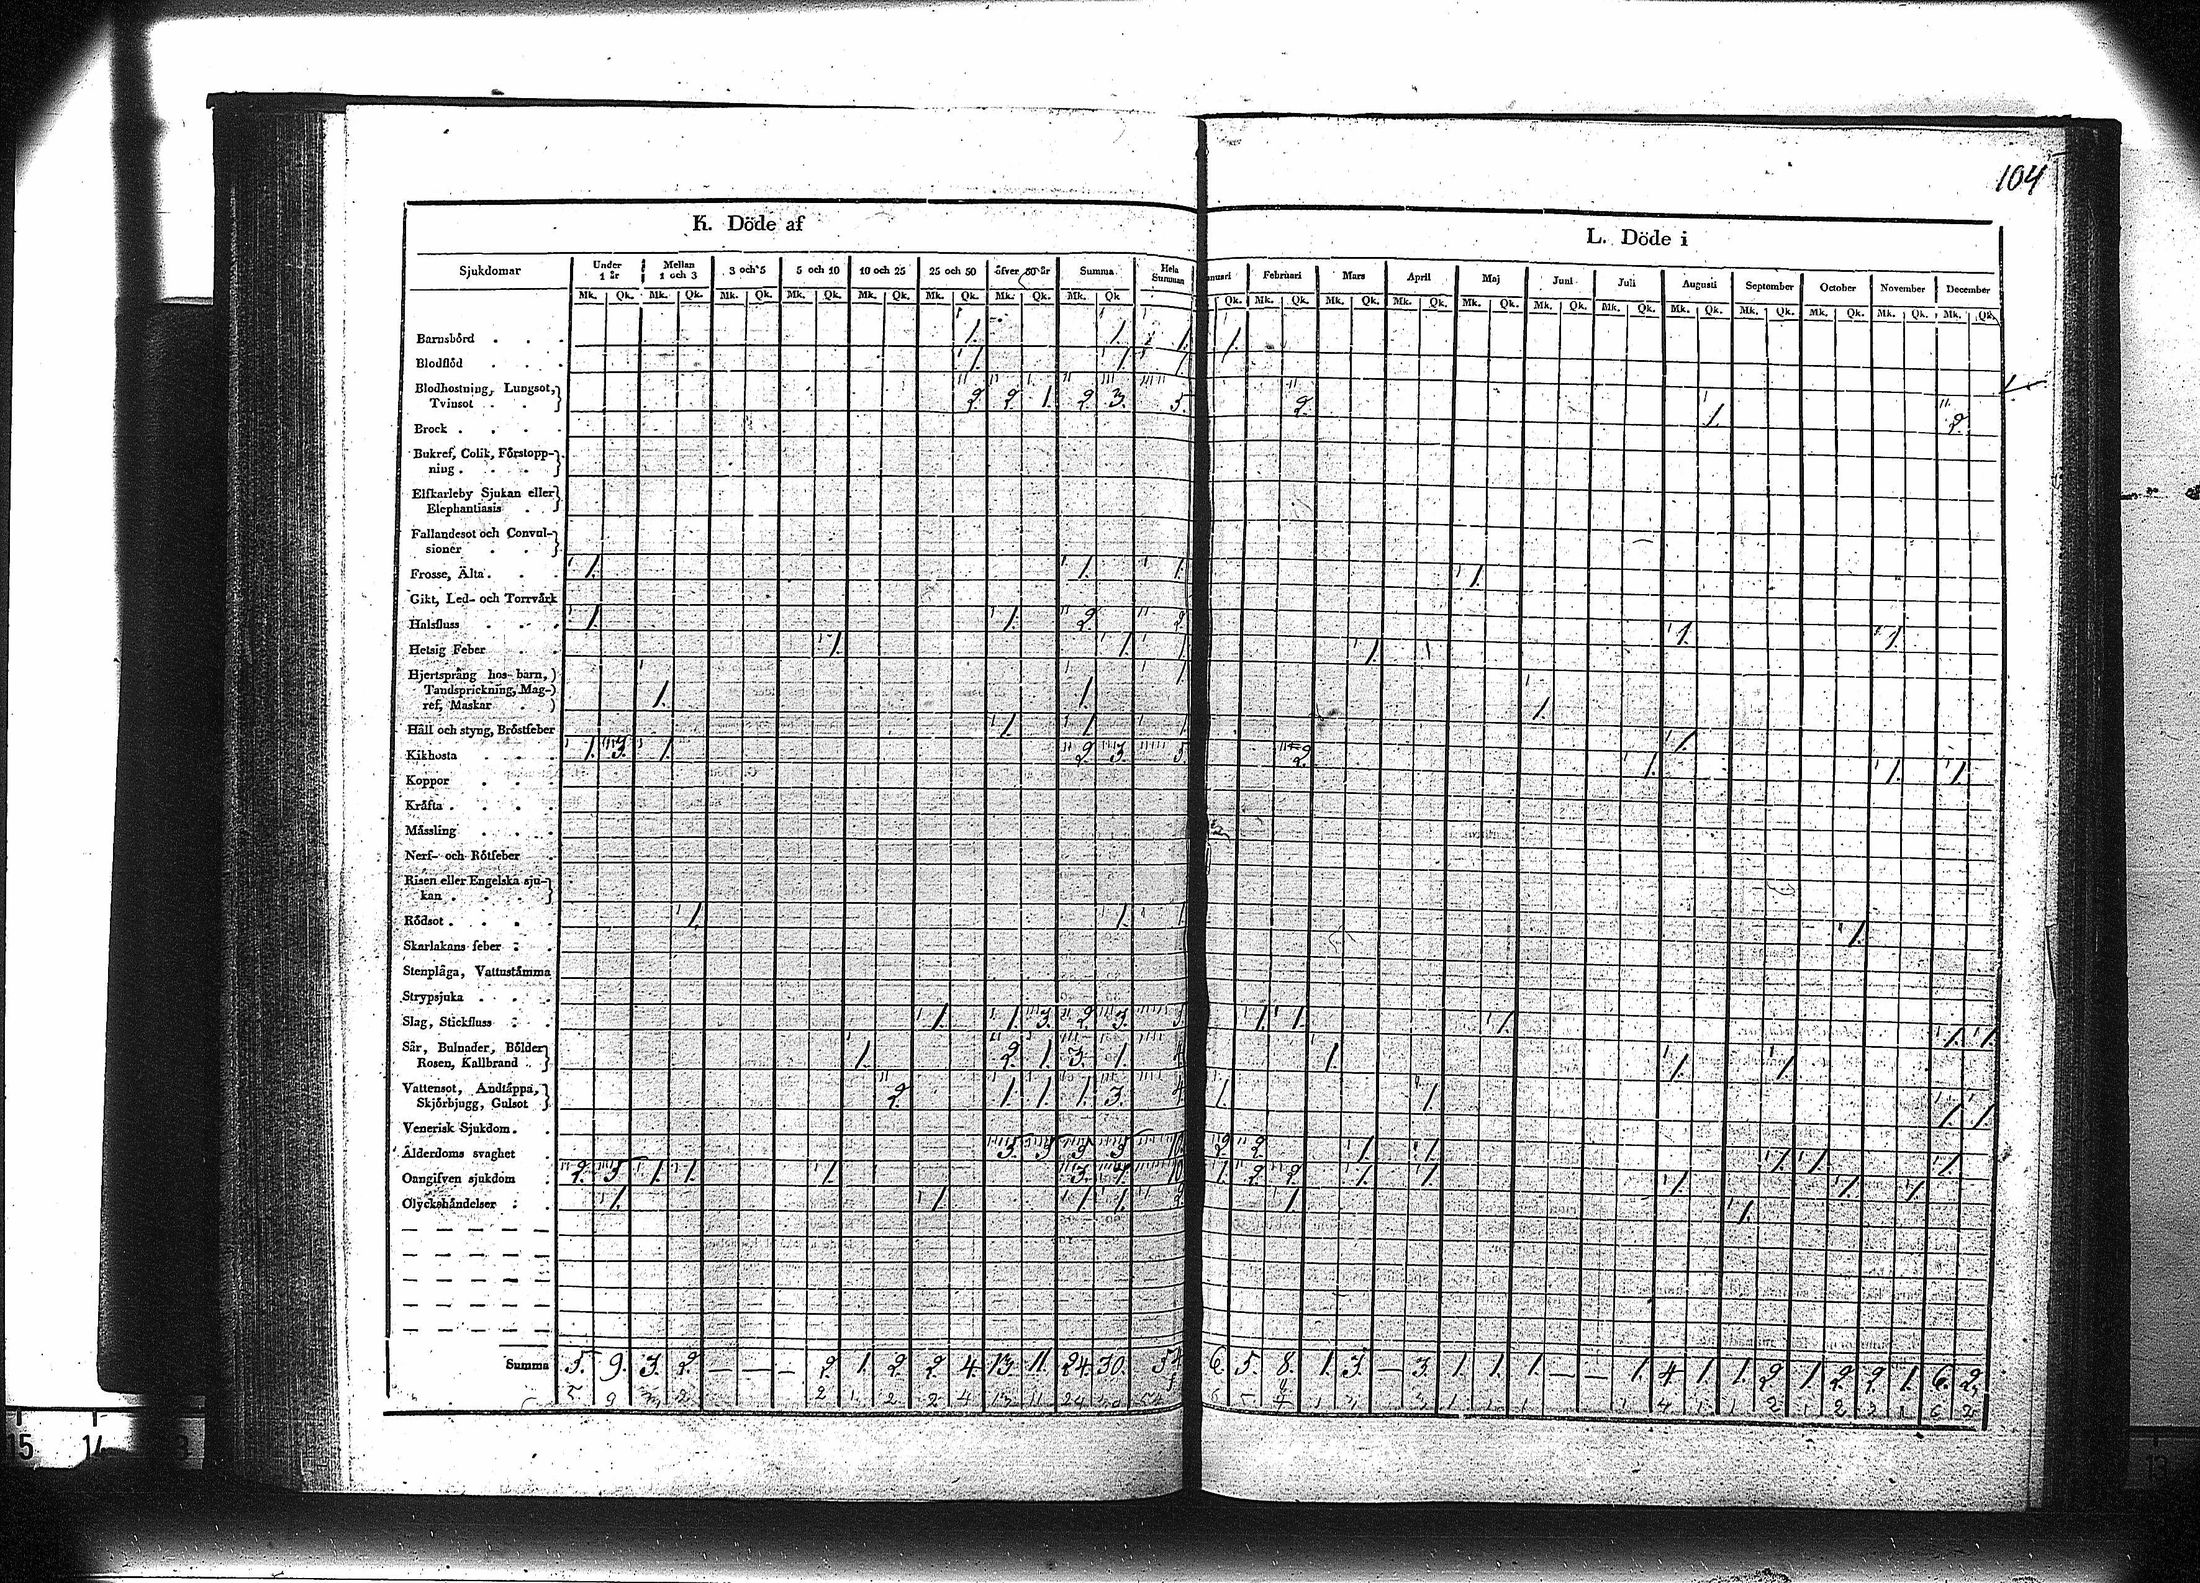 104
K. Döde af
L. Döde i
Sjukdomar Under 1 år Mellan 1 och 3 3 och 5 5 och 10 10 och 25 25 och 50 öfver 50 år Summa Hela Summan
Februari Mars April Maj Juni Juli Augusti September October November December
Mk. Qk. Mk. Qk. Mk. Qk. Mk. Qk. Mk. Qk. Mk. Qk. Mk. Qk. Mk. Qk
Qk. Mk. Qk. Mk. Qk. Mk. Qk. Mk. Qk. Mk. Qk. Mk. Qk. Mk. Qk. Mk. Qk. Mk. Qk. Mk. Qk. Mk. Qk.
Barnsbörd 1. 1. 1. 1.
Blodflöd 1. 1. 1
Blodhostning, Lungsot,
Tvinsot 2. 2. 1. 2. 3. 5. 2. 1. 2.
Brock
Bukref, Colik, Förstopp-
ning
Elfkarleby Sjukan eller
Elephantiasis
Fallandesot och Convul-
sioner
Frosse, Älta 1. 1. 1. 1.
Gikt, Led- och Torrvärk
Halsfluss 1. 1. 2. 2. 1. 1.
Hetsig Feber 1. 1. 1 1.
Hjertsprång hos barn,
Tandsprickning, Mag-
ref, Maskar 1. 1. 1 1.
Håll och styng, Bröstfeber 1. 1. 1 1.
Kikhosta 1. 3. 1. 2. 3. 5 2. 1. 1. 1.
Koppor
Kräfta
Måssling
Nerf- och Rötfeber
Risen eller Engelska sju-
kan
Rödsot 1. 1. 1 1.
Skarlakans feber
Stenplåga, Vattustämma
Strypsjuka
Slag, Stickfluss 1. 1. 3. 2. 3. 5 1. 1. 1. 1. 1.
Sår, Bulnader, Bölder
Rosen, Kallbrand 1. 2. 1. 3. 1. 4 1. 1. 1.
Vattensot, Andtäppa,
Skjörbjugg, Gulsot 2. 1. 1. 1. 3. 4 1. 1. 1. 1.
Venerisk Sjukdom
Ålderdoms svaghet 5. 5 5 5 10 2 2 1. 1. 1. 1. 1.
Oangifven sjukdom 2. 5. 1. 1. 1. 3. 7. 10 1. 2. 2. 1. 1. 1. 1. 1.
Olyckshändelser 1. 1. 1. 1. 2 1. 1.
Summa 5. 9. 3. 2. — — — 2. 1. 2. 2. 4. 13. 11. 24. 30. 54 6. 5. 8. 1. 3. — 3. 1. 1. 1. — — 1. 4. 1. 1. 2. 1. 2. 2. 1. 6. 2.